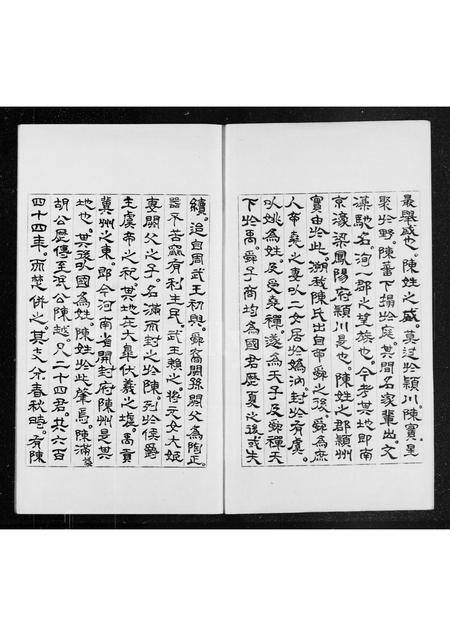 最舉盛也。陳姓之盛。莫過於潁川。陳寔星
聚於野。陳蕃下榻於庭。其間名家輩出。文
藻馳名。洵一郡之望族也。今考其地即南
京濠梁鳳陽府潁川是也。陳姓之郡潁州
實由於此。溯我陳氏出自帝舜之後。舜為庶
人。帝堯之妻以二女居於媯汭。封於有虞。
以姚為姓。及受堯禪。遂為天子。及舜禪天
下於禹。舜子商均為國君。歷夏之後。或失
續。追自周武王初興。舜裔閼孫閼父為陶正。
器不苦窳。有利生民。武王賴之。將元女大姬
妻閼父之子。名滿而封之於陳。列於侯爵
主虞帝之祀。其地在大皞伏羲之墟。禹貢
冀州之東。即今河南省開封府陳州是其
地也。其後以國為姓。陳姓於此肇焉。陳滿
胡公歷傳至泯公陳越。凡二十四君。共六百
四十四年。而楚併之。其支分春秋時。有陳